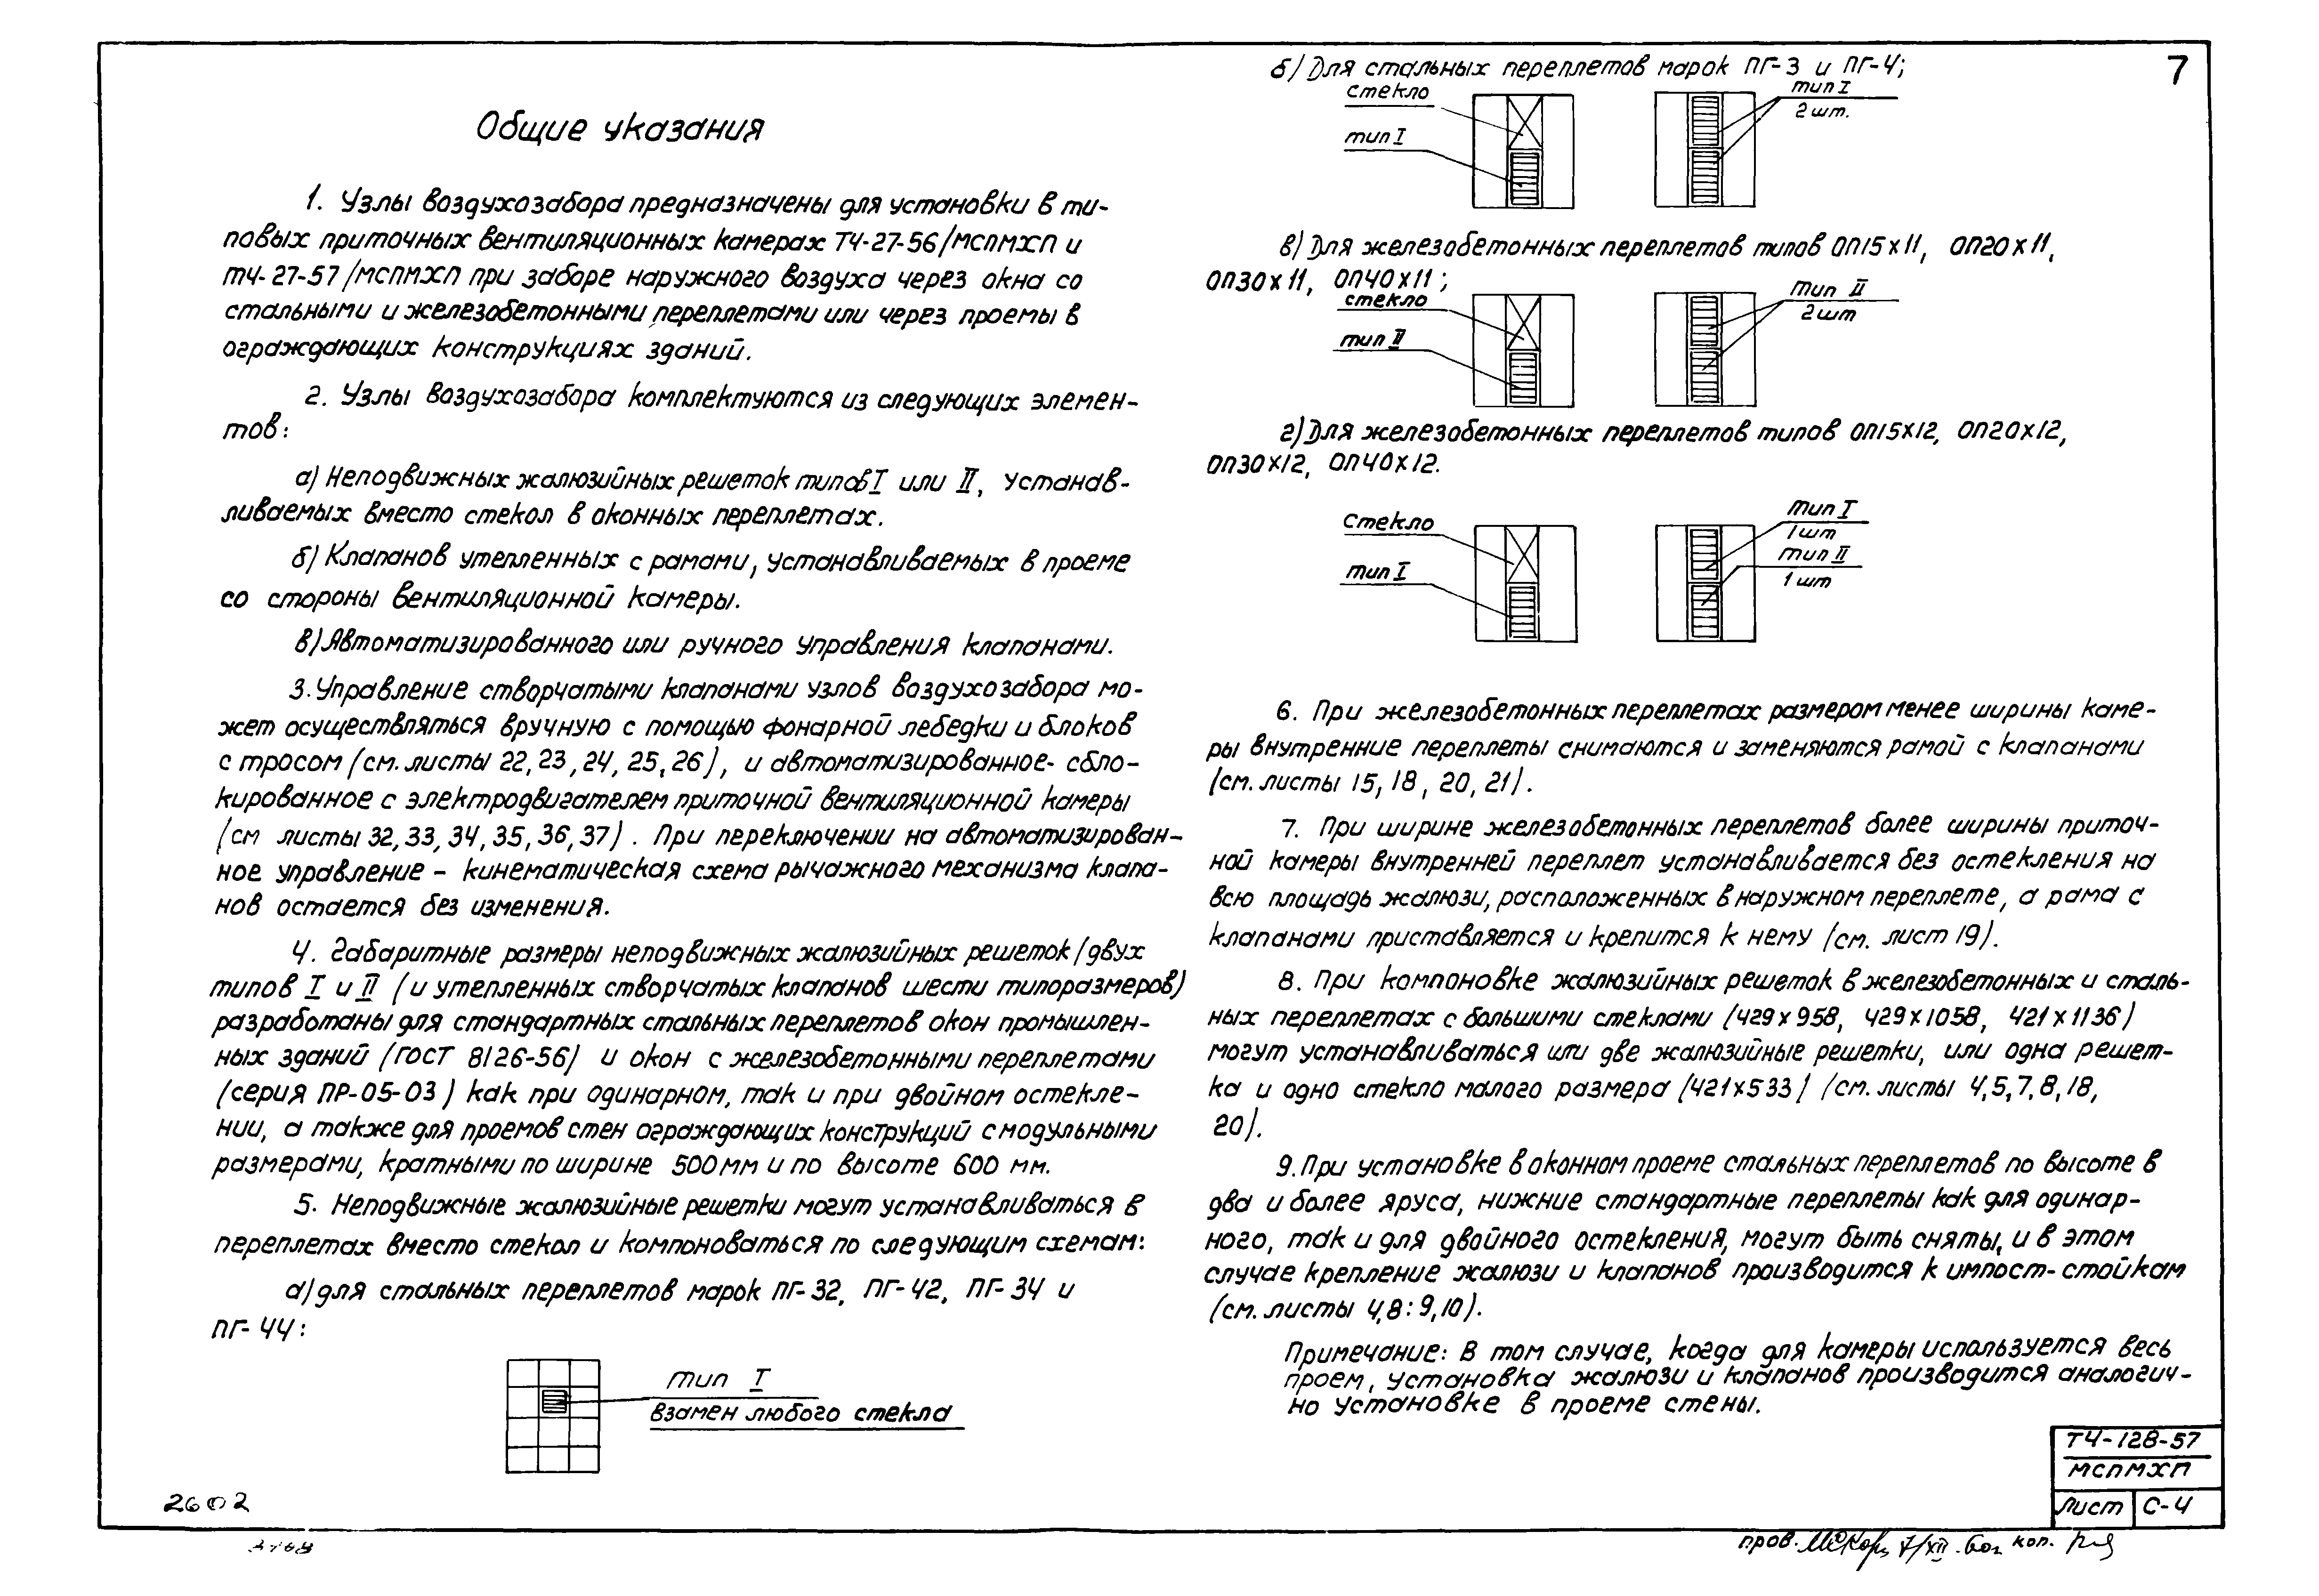 7
Общие указания
1. Узлы воздухозабора предназначены для установки в ти-
повых приточных вентиляционных камерах ТЧ-27-56/МСПМХП и
ТЧ-27-57/МСПМХП при заборе наружного воздуха через окна со
стальными и железобетонными переплетами или через проемы в
ограждающих конструкциях зданий.
2. Узлы воздухозабора комплектуются из следующих элемен-
тов:
а) Неподвижных жалюзийных решеток типов I или II, устанав-
ливаемых вместо стекол в оконных переплетах.
б) Клапанов утепленных с рамами, устанавливаемых в проеме
со стороны вентиляционной камеры.
в) Автоматизированного или ручного управления клапанами.
3. Управление створчатыми клапанами узлов воздухозабора мо-
жет осуществляться вручную с помощью фонарной лебедки и блоков
с тросом (см. листы 22, 23, 24, 25, 26), и автоматизированное- сбло-
кированное с электродвигателем приточной вентиляционной камеры
(см листы 32, 33, 34, 35, 36, 37). При переключении на автоматизирован-
ное управление – кинематическая схема рычажного механизма клапа-
нов остается без изменения.
4. Габаритные размеры неподвижных жалюзийных решеток /двух
типов I и II (и утепленных створчатых клапанов шести типоразмеров)
разработаны для стандартных стальных переплетов окон промышлен-
ных зданий (ГОСТ 8126-56) и окон с железобетонными переплетами
(серия ПР-05-03) как при одинарном, так и при двойном остекле-
нии, а также для проемов стен ограждающих конструкций с модульными
размерами, кратными по ширине 500 мм и по высоте 600 мм.
5. Неподвижные жалюзийные решетки могут устанавливаться в
переплетах вместо стекол и компоноваться по следующим схемам:
а) для стальных переплетов марок ПГ-32, ПГ-42, ПГ-34 и
ПГ-44:
тип I
взамен любого стекла
б) Для стальных переплетов марок ПГ-3 и ПГ-4;
стекло
тип I
тип I
2 шт.
в) Для железобетонных переплетов типов ОП15х11, ОП20х11,
ОП30х11, ОП40х11;
стекло
тип II
тип II
2 шт
г) Для железобетонных переплетов типов ОП15х12, ОП20х12,
ОП30х12, ОП40х12.
Стекло
тип I
тип I
1 шт
тип II
1 шт
6. При железобетонных переплетах размером менее ширины каме-
ры внутренние переплеты снимаются и заменяются рамой с клапанами
(см. листы 15, 18, 20, 21).
7. При ширине железобетонных переплетов более ширины приточ-
ной камеры внутренней переплет устанавливается без остекления на
всю площадь жалюзи, расположенных в наружном переплете, а рама с
клапанами приставляется и крепится к нему (см. лист 19).
8. При компоновке жалюзийных решеток в железобетонных и сталь-
ных переплетах с большими стеклами (429х958, 429х1058, 421х1136)
могут устанавливаться или две жалюзийные решетки, или одна решет-
ка и одно стекло малого размера (421х533) (см. листы 4,5,7,8,18,
20).
9. При установке в оконном проеме стальных переплетов по высоте в
два и более яруса, нижние стандартные переплеты как для одинар-
ного, так и для двойного остекления, могут быть сняты, и в этом
случае крепление жалюзи и клапанов производится к импост-стойкам
(см. листы 4,8:9,10).
Примечание: В том случае, когда для камеры используется весь
проем, установка жалюзи и клапанов производится аналогич-
но установке в проеме стены.
ТЧ-128-57
МСПМХП
Лист С-4
2602
пров. 7/XII коп.